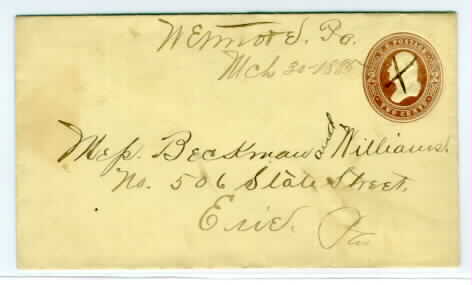 Wetmore, Pa.
Mch 30-1885
U.S. POSTAGE
TWO CENTS
Mess. Beckman and Williams.
No. 506 State Street,
Erie.
Pa